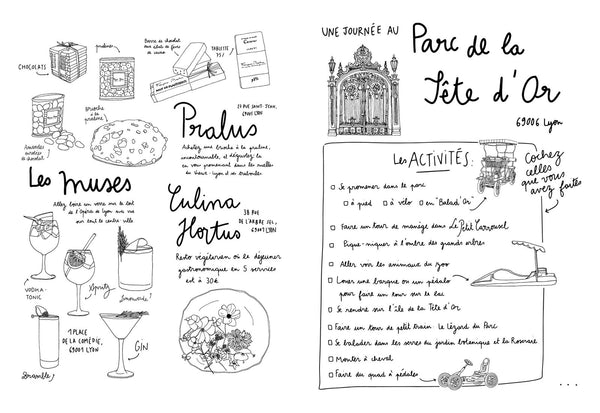 CHOCOLATS
pralines
Barre de chocolat
aux éclats de fèves
de cacao
TABLETTE
75%
Amandes
enrobées
de chocolat
Brioche
à la
praline
27 RUE SAINT-JEAN,
69005 LYON
Pralus
Achetez une brioche à la praline,
incontournable, et dégustez-la
en vous promenant dans les ruelles
du Vieux-Lyon et ses traboules
Les Muses
Allez boire un verre sur le toit
de l'Opéra de Lyon avec vue
sur tout le centre-ville
VODKA-
TONIC
Spritz
Limonade!
1 PLACE
DE LA COMÉDIE,
69001 LYON
Bramble!
GIN
Culina
Hortus
38 RUE
DE L'ARBRE SEC,
69001 LYON
Resto végétarien où le déjeuner
gastronomique en 5 services
est à 30€
UNE JOURNÉE AU
Parc de la
Tête d'Or
69006 Lyon
Les ACTIVITÉS:
Cochez
celles
que vous
avez faites
Se promener dans le parc
à pied à vélo en "Balad'Or"
Faire un tour de manège dans Le Petit Carrousel
Pique-niquer à l'ombre des grands arbres
Aller voir les animaux du zoo
Louer une barque ou un pédalo
pour faire un tour sur le lac
Se rendre sur l'île de la Tête d'Or
Faire un tour de petit train: Le Lézard du Parc
Se balader dans les serres du jardin botanique et la Roseraie
Monter à cheval
Faire du quad à pédales
...